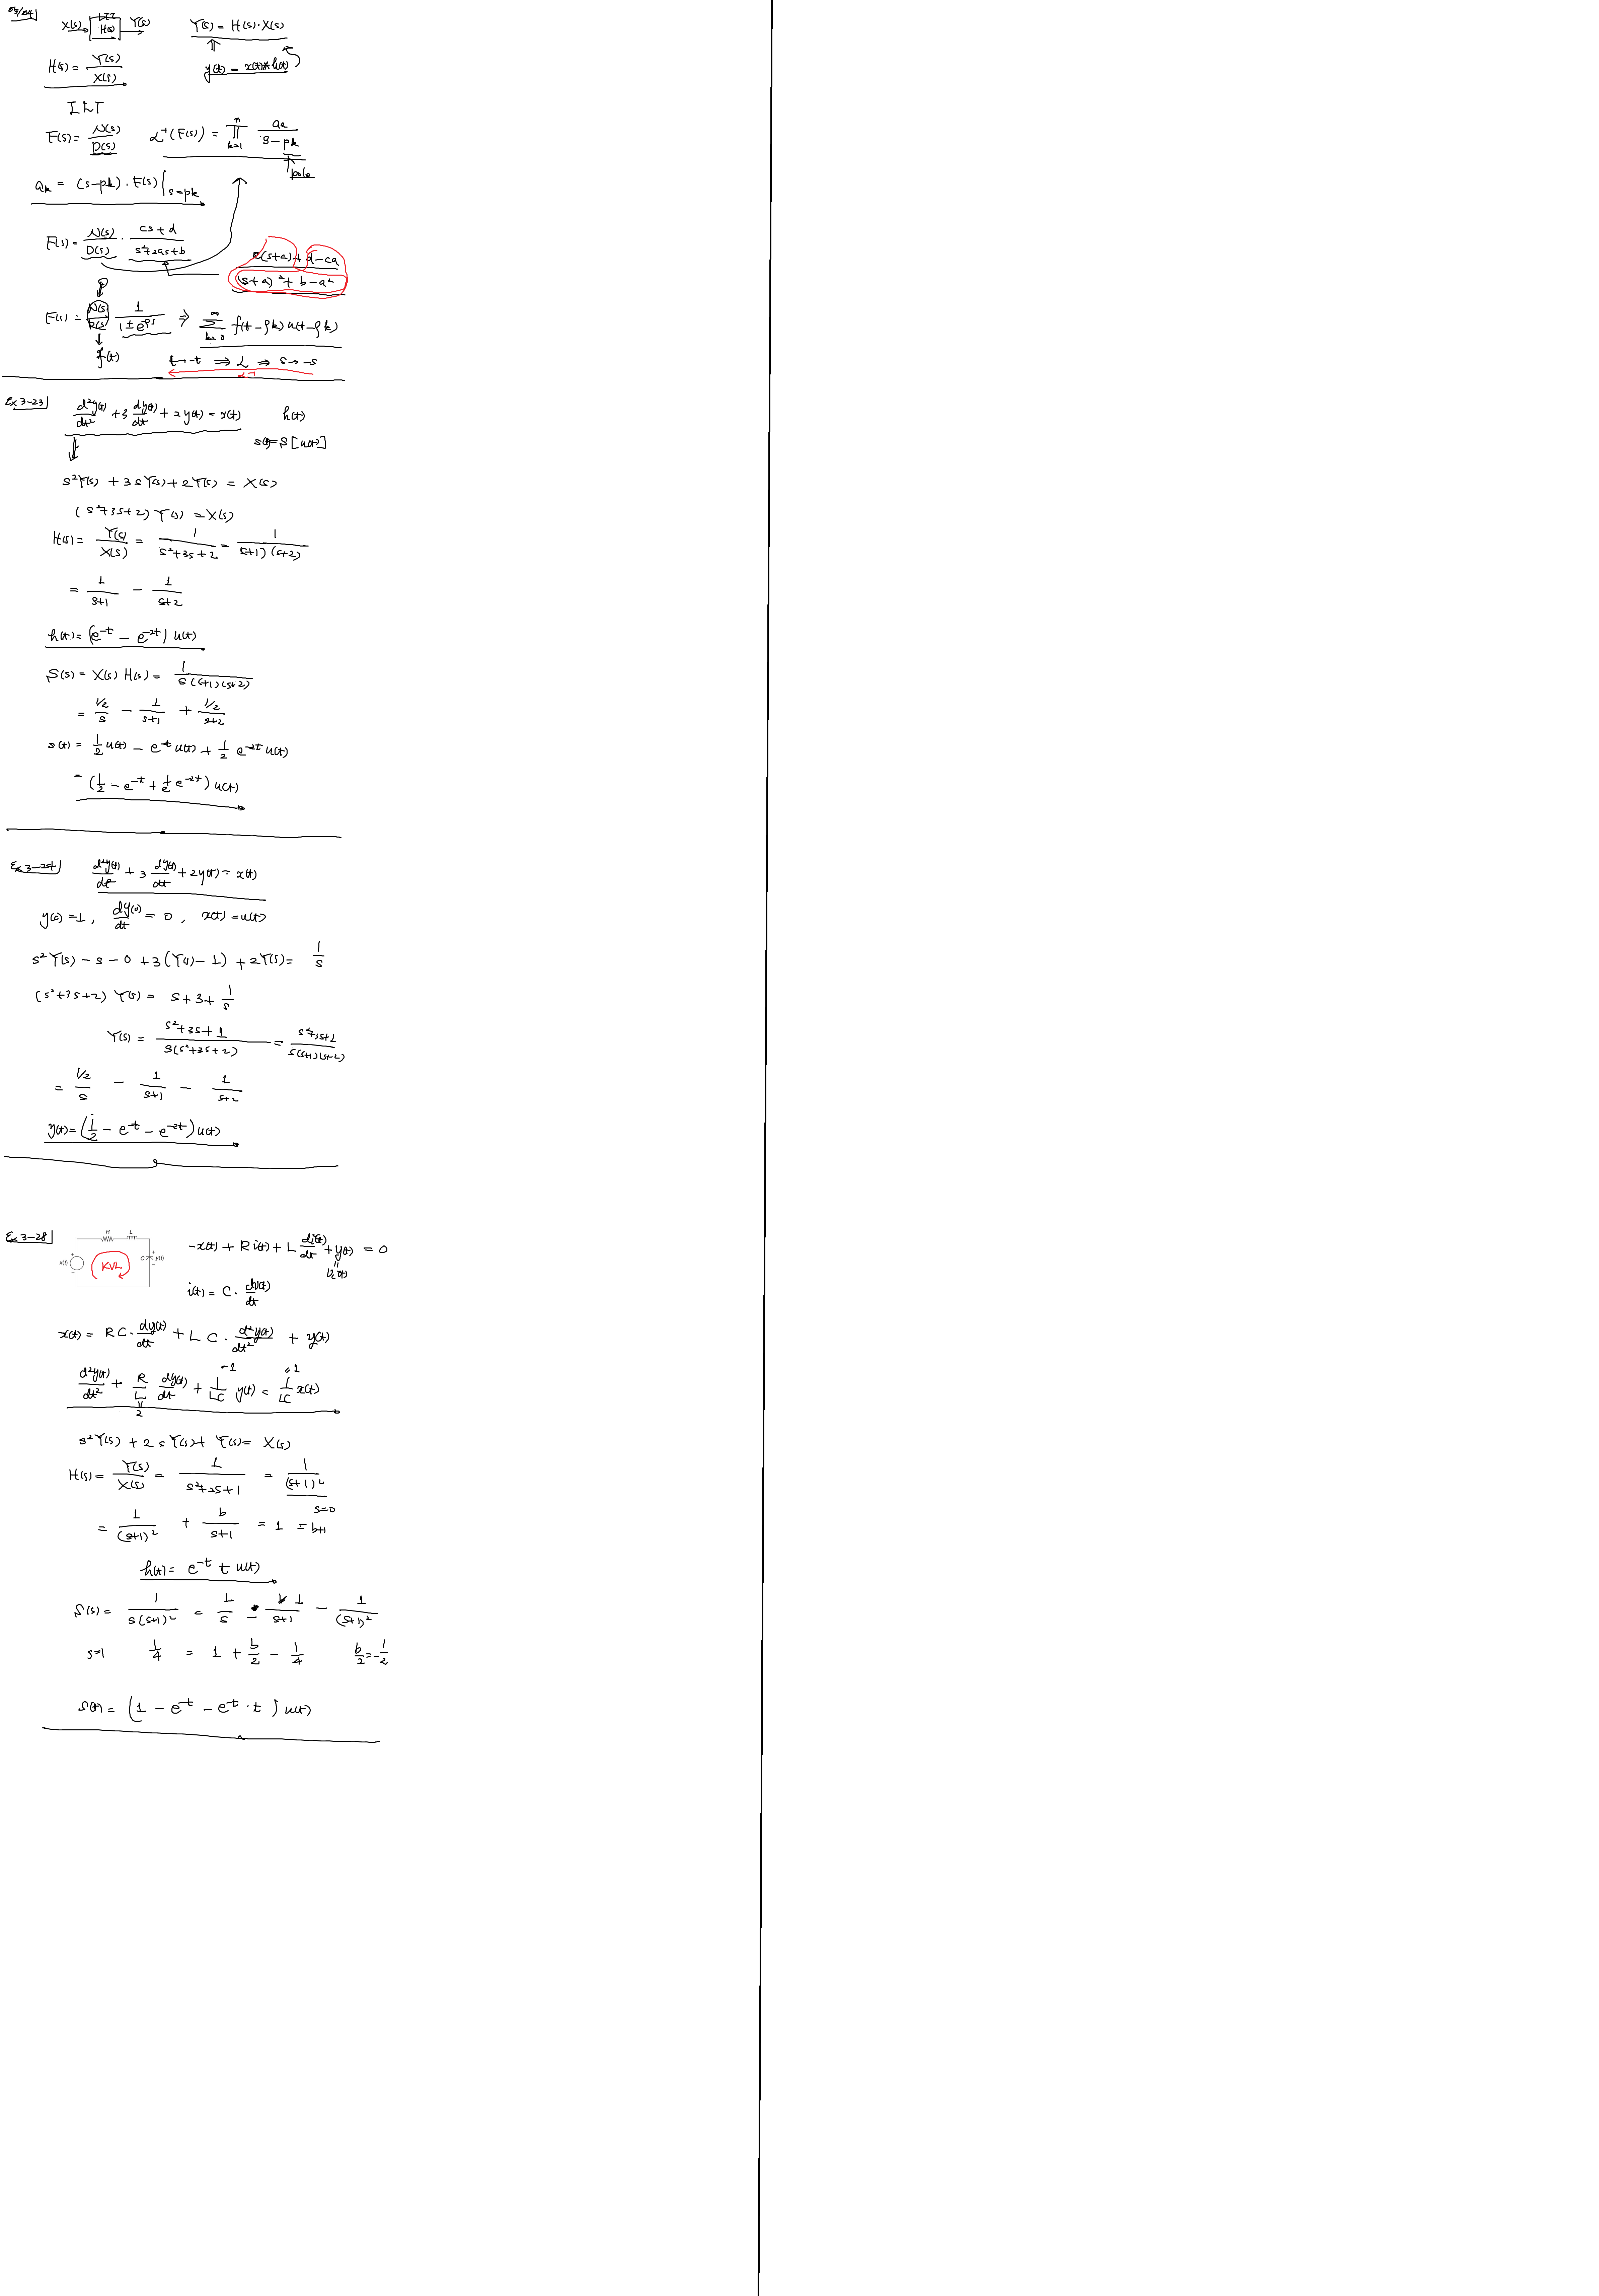 05/04
X(s) → LTI H(s) → Y(s)    Y(s) = H(s)·X(s)
H(s) = Y(s)/X(s)    y(t) = x(t)*h(t)
ILT
F(s) = N(s)/D(s)    L⁻¹(F(s)) = ∏_{k=1}^{n} ak/(s-pk)
pole
ak = (s-pk)·F(s)|s=pk
F(s) = N(s)/D(s) · (cs+d)/(s²+2as+b)
(c(s+a)+d-ca)/((s+a)²+b-a²)
F(s) = N(s)/D(s) · 1/(1±e^-ρs) ⇒ ∑_{k=0}^{∞} f(t-ρk)u(t-ρk)
f(t)    t→-t ⇒ L ⇒ s→-s
L⁻¹
Ex 3-23
d²y(t)/dt² + 3 dy(t)/dt + 2y(t) = x(t)    h(t)
s(t) = S[u(t)]
s²Y(s) + 3sY(s) + 2Y(s) = X(s)
(s²+3s+2)Y(s) = X(s)
H(s) = Y(s)/X(s) = 1/(s²+3s+2) = 1/((s+1)(s+2))
= 1/(s+1) - 1/(s+2)
h(t) = (e^-t - e^-2t)u(t)
S(s) = X(s)H(s) = 1/(s(s+1)(s+2))
= 1/2/s - 1/(s+1) + 1/2/(s+2)
s(t) = 1/2 u(t) - e^-t u(t) + 1/2 e^-2t u(t)
= (1/2 - e^-t + 1/2 e^-2t)u(t)
Ex 3-24    d²y(t)/dt² + 3 dy(t)/dt + 2y(t) = x(t)
y(0) = 1, dy(0)/dt = 0, x(t) = u(t)
s²Y(s) - s - 0 + 3(Y(s) - 1) + 2Y(s) = 1/s
(s²+3s+2)Y(s) = s+3+1/s
Y(s) = (s²+3s+1)/(s(s²+3s+2)) = (s²+3s+1)/(s(s+1)(s+2))
= 1/2/s - 1/(s+1) - 1/(s+2)
y(t) = (1/2 - e^-t - e^-2t)u(t)
Ex 3-28
R L
x(t) KVL C y(t)
-x(t) + Ri(t) + L di(t)/dt + y(t) = 0
i(t) = C·dy(t)/dt
x(t) = RC·dy(t)/dt + LC·d²y(t)/dt² + y(t)
=1    =1
d²y(t)/dt² + R/L dy(t)/dt + 1/LC y(t) = 1/LC x(t)
2
s²Y(s) + 2sY(s) + Y(s) = X(s)
H(s) = Y(s)/X(s) = 1/(s²+2s+1) = 1/(s+1)²
s=0
= 1/(s+1)² + b/(s+1) = 1 = b+1
h(t) = e^-t t u(t)
S(s) = 1/(s(s+1)²) = 1/s - 1/(s+1) - 1/(s+1)²
s=1    1/4 = 1 + b/2 - 1/4    b/2 = -1/2
s(t) = (1 - e^-t - e^-t·t)u(t)